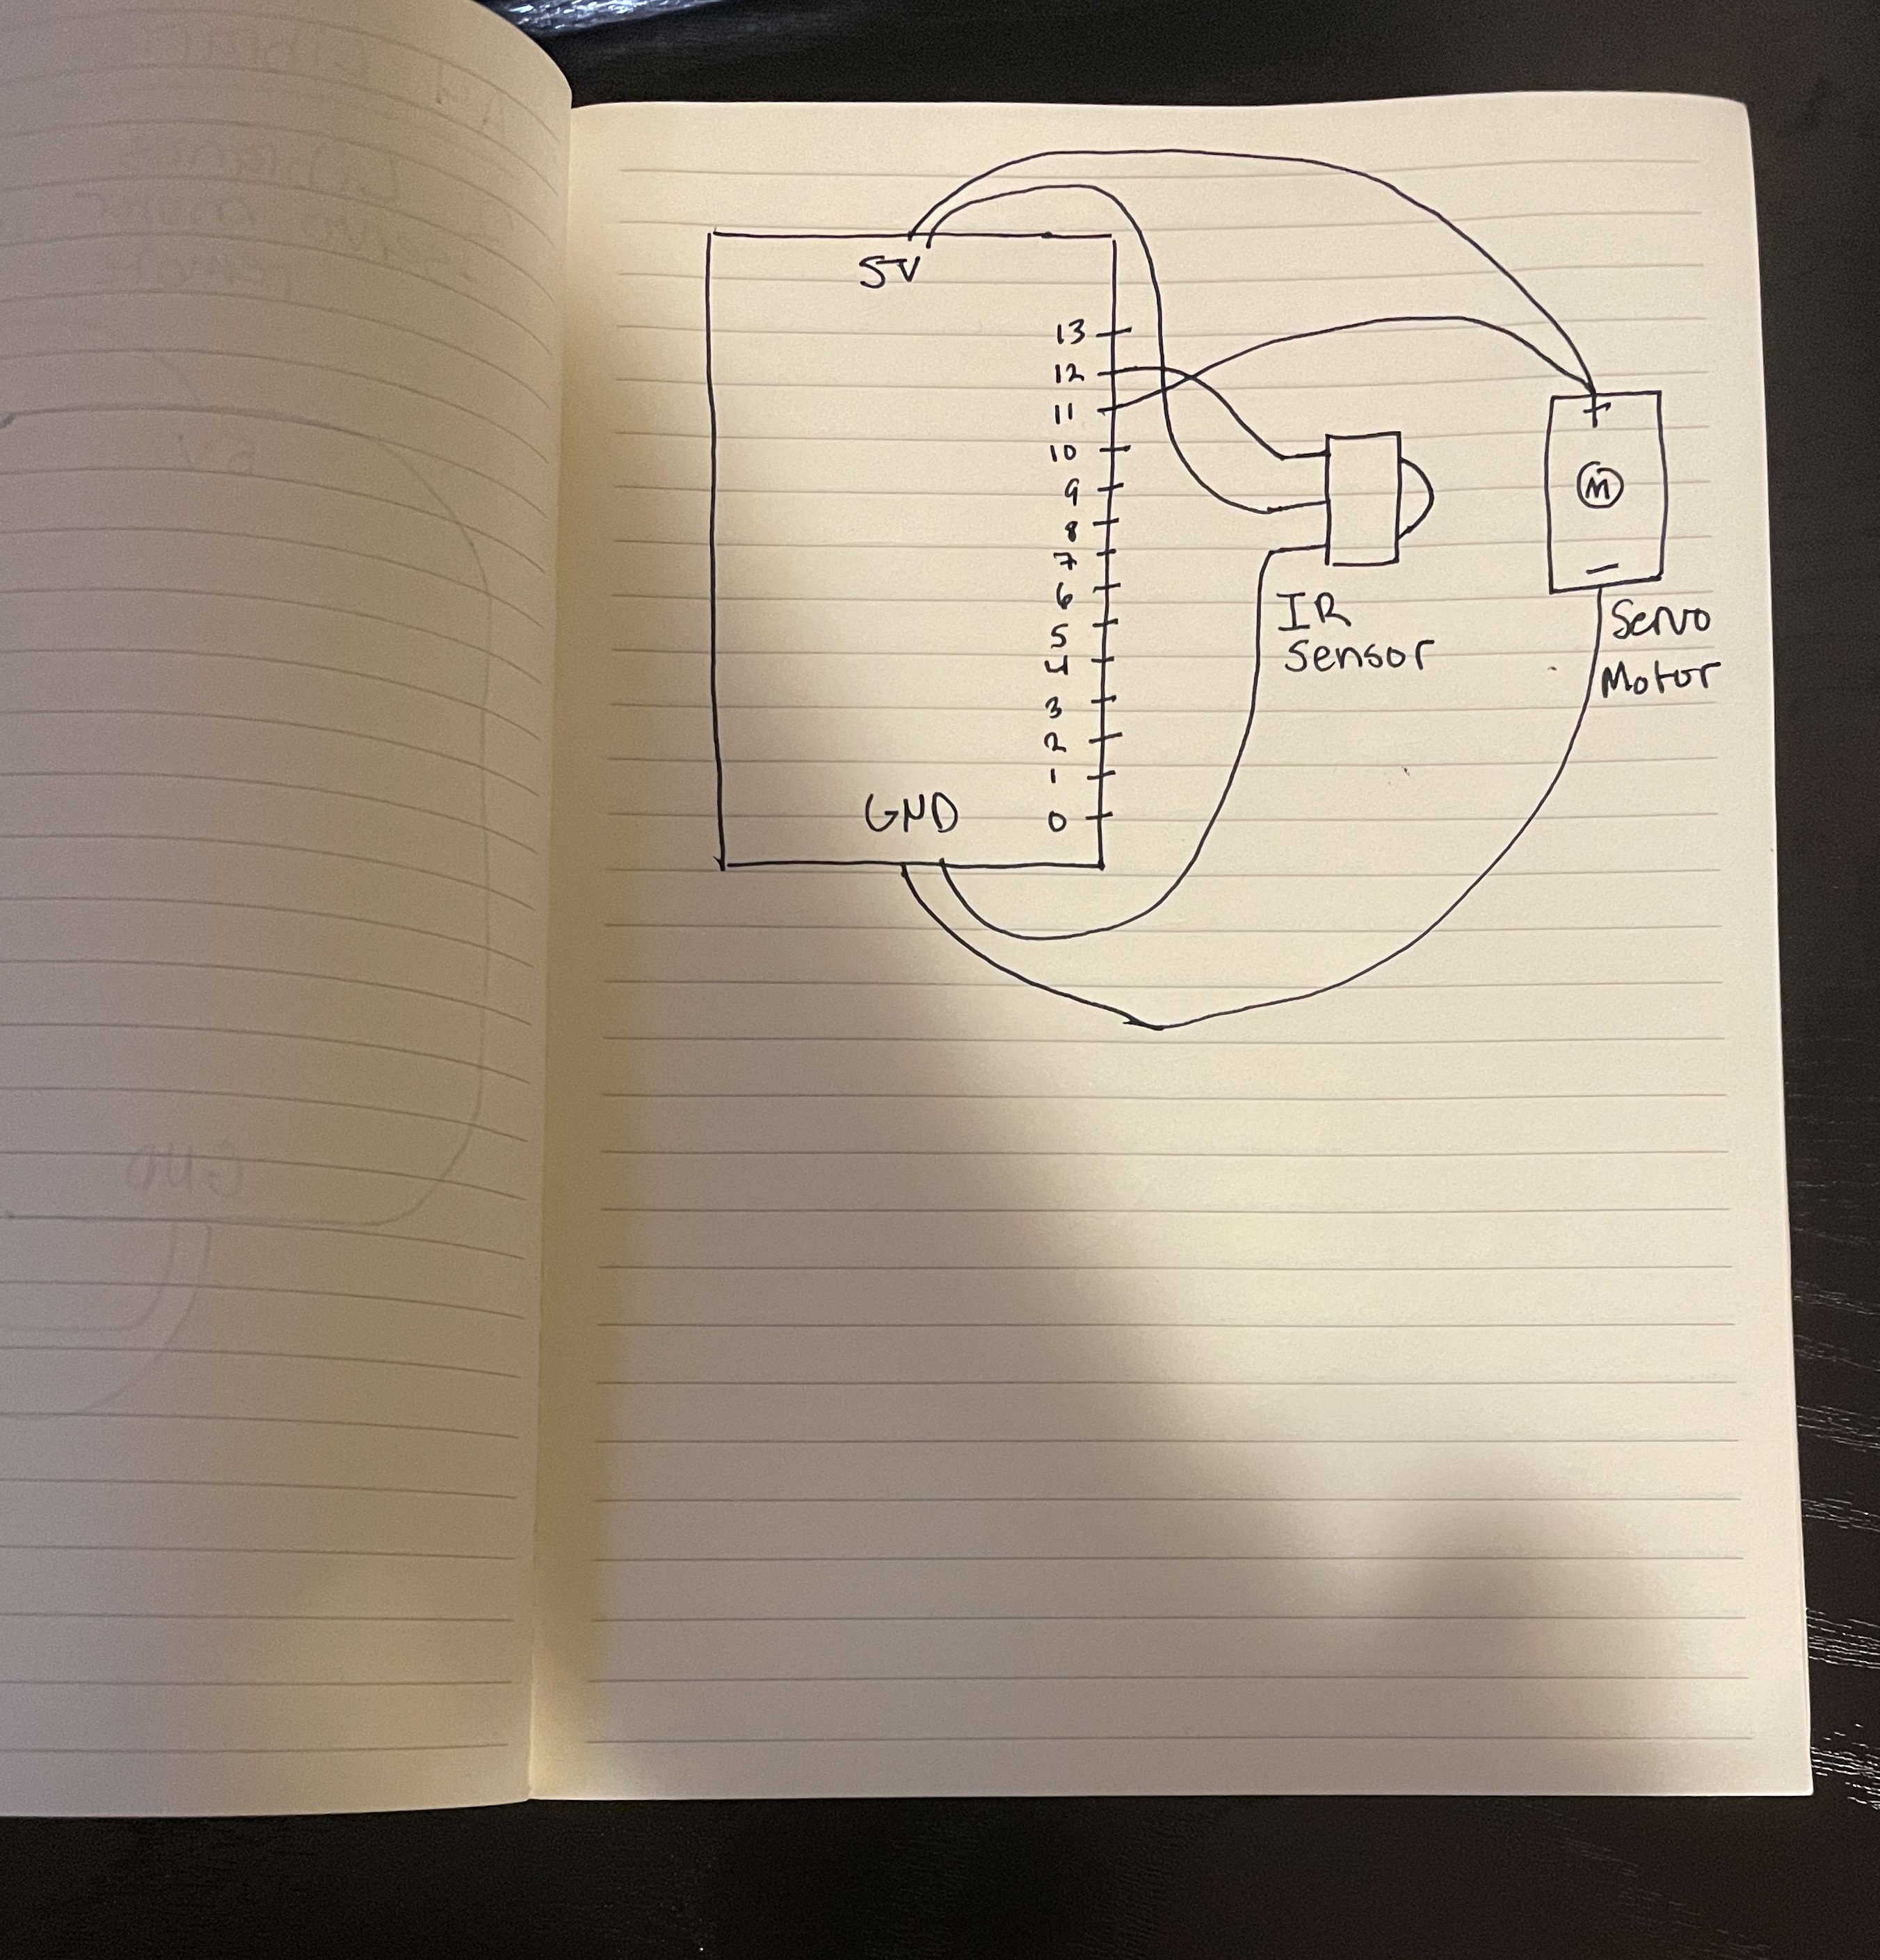 5V
13
12
11
10
9
8
7
6
5
4
3
2
1
0
GND
+
M
−
IR
Sensor
Servo
Motor